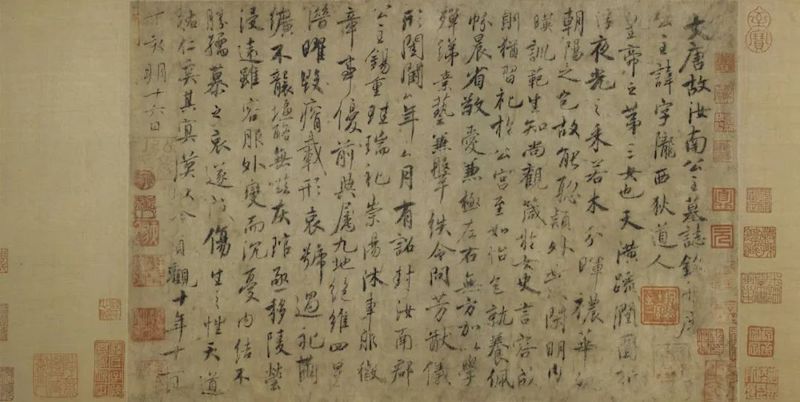 大唐故汝南公主墓誌銘并序
公主諱字隴西狄道人
皇帝之第三女也天潢疏潤圓折
浮夜光之采若木分暉穠華照
朝陽之色故能聰穎外發閑明內
映訓範生知尚觀箴於女史言容成
則猶習礼於公宮至如怡色就養佩
帉晨省敬愛兼極左右無方加以學
殫綈素藝兼鞶紩令問芳猷儀
形閨閫厶年厶月有詔封汝南郡
公主錫重珪瑞礼崇湯沐車服徽
章事優前典屬九地絕維四星
潛曜毀瘠載形哀號過礼繭
纊不襲塩酪無滋灰琯亟移陵塋
浸遠雖容服外變而沉憂內結不
勝孺慕之哀遂成傷生之性天道
祐仁奚其冥漠以今貞觀十年十一月
丁亥朔十六日